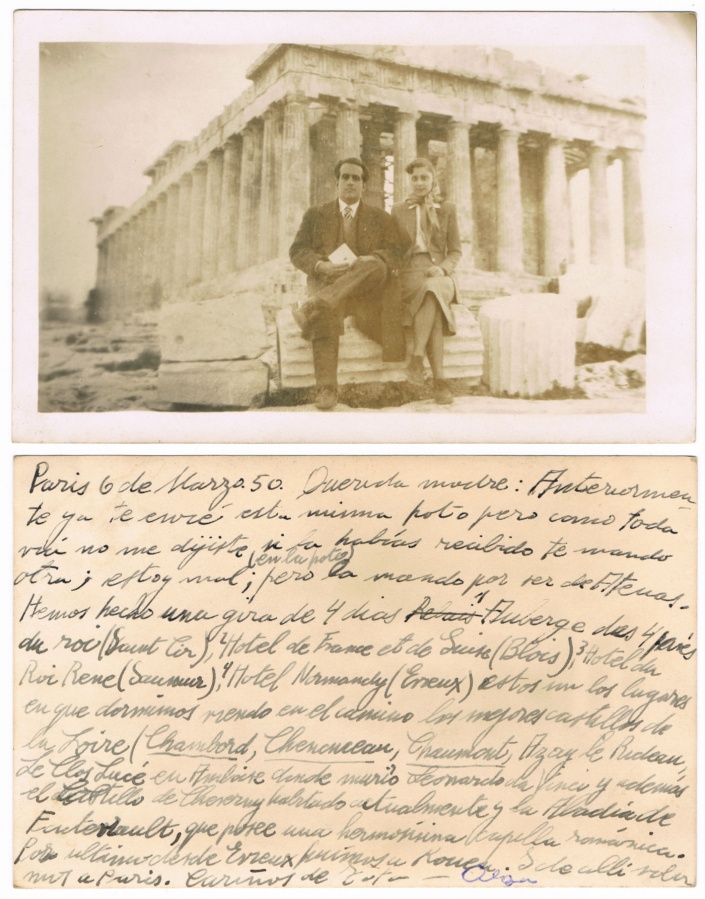 Paris 6 de Marzo. 50. Querida madre: Anteriormen
te ya te envié esta misma foto pero como toda
vía no me dijiste si la habías recibido te mando
otra; estoy mal (en la foto); pero la mando por ser de Atenas.
Hemos hecho una gira de 4 dias 1 Auberge des 4 pavés
du roi (Saint Cir), 2 Hotel de France et de Suise (Blois), 3 Hotel du
Roi Rene (Saumur), 4 Hotel Normandy (Evreux) estos son los lugares
en que dormimos viendo en el camino los mejores castillos de
la Loire (Chambord, Chenonceau, Chaumont, Azay le Rideau,
Le Clos Lucé en Amboise donde murió Leonardo da Vinci y además
el Castillo de Cheverny habitado actualmente y la Abadía de
Fontevrault, que posee una hermosísima capilla románica.
Por ultimo desde Evreux fuimos a Rouen. De alli volvi
mos a Paris. Cariños de